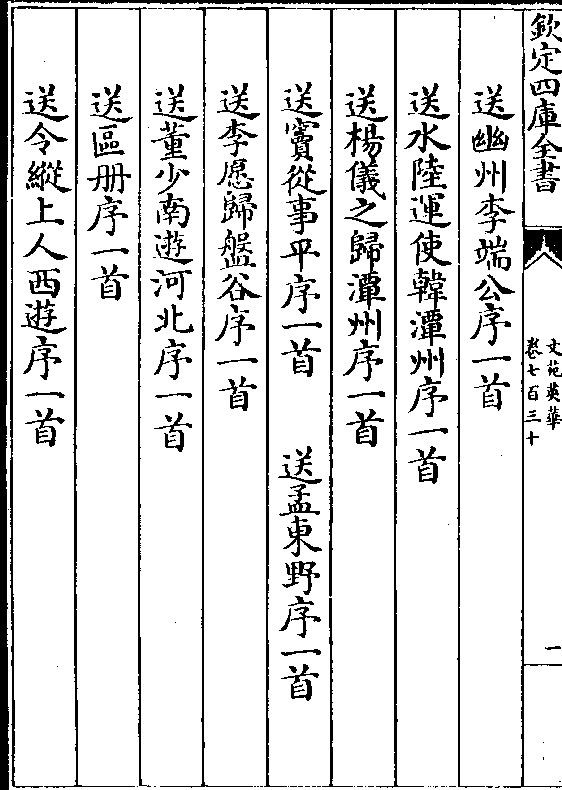 欽定四庫全書
文苑英華
卷七百三十
一
送幽州李端公序一首
送水陸運使韓潭州序一首
送楊儀之歸潭州序一首
送竇從事平序一首　送孟東野序一首
送李愿歸盤谷序一首
送董少南遊河北序一首
送區册序一首
送令縱上人西遊序一首